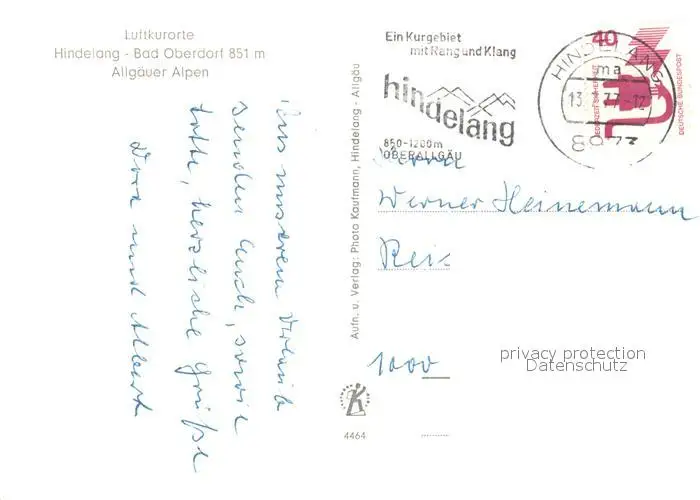 Luftkurorte
Hindelang - Bad Oberdorf 851 m
Allgäuer Alpen
Aus unserem Urlaub
senden Euch, sowie
herzliche Grüße
Dora und Albert
Aufn. u. Verlag: Photo Kaufmann, Hindelang - Allgäu
4464
Ein Kurgebiet
mit Rang und Klang
hindelang
850-1200m
OBERALLGÄU
HINDELANG
ma
13. 77-12
8973
40
JEDERZEIT SICHERHEIT
DEUTSCHE BUNDESPOST
Herrn
Werner Heinemann
1000
privacy protection
Datenschutz